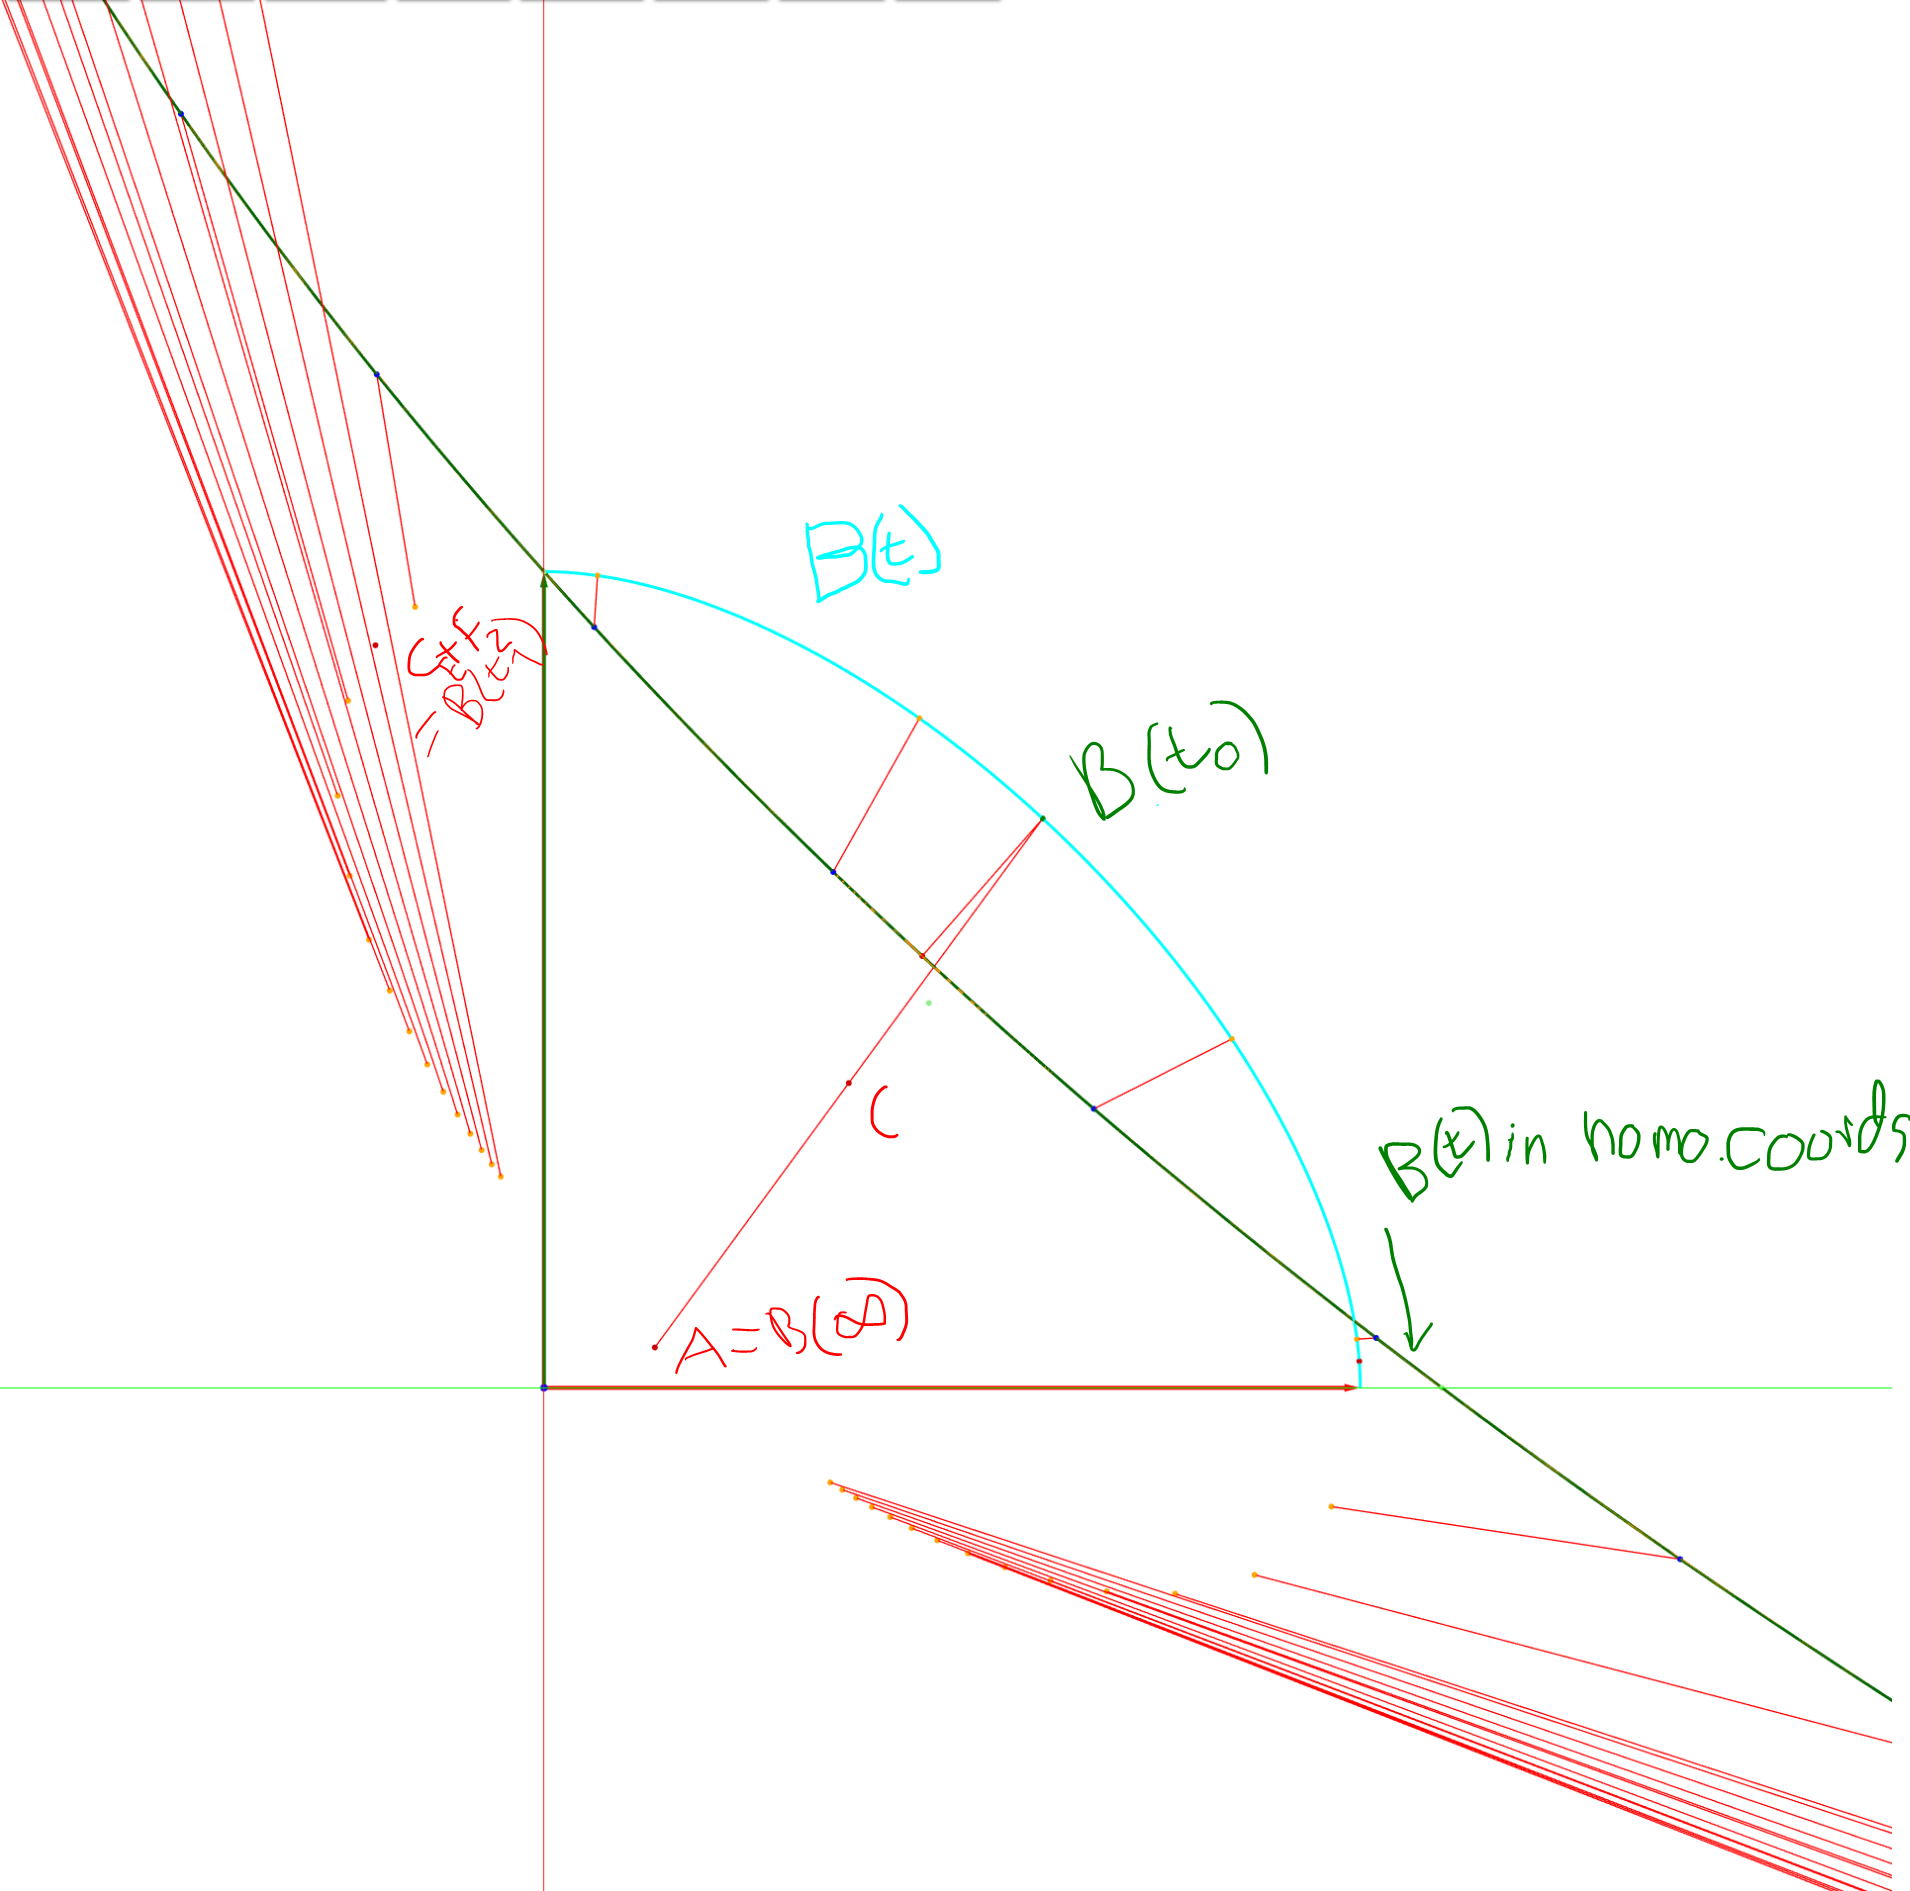 B(t)
B(t0)
C
B(t) in homo.coords
A=B(∞)